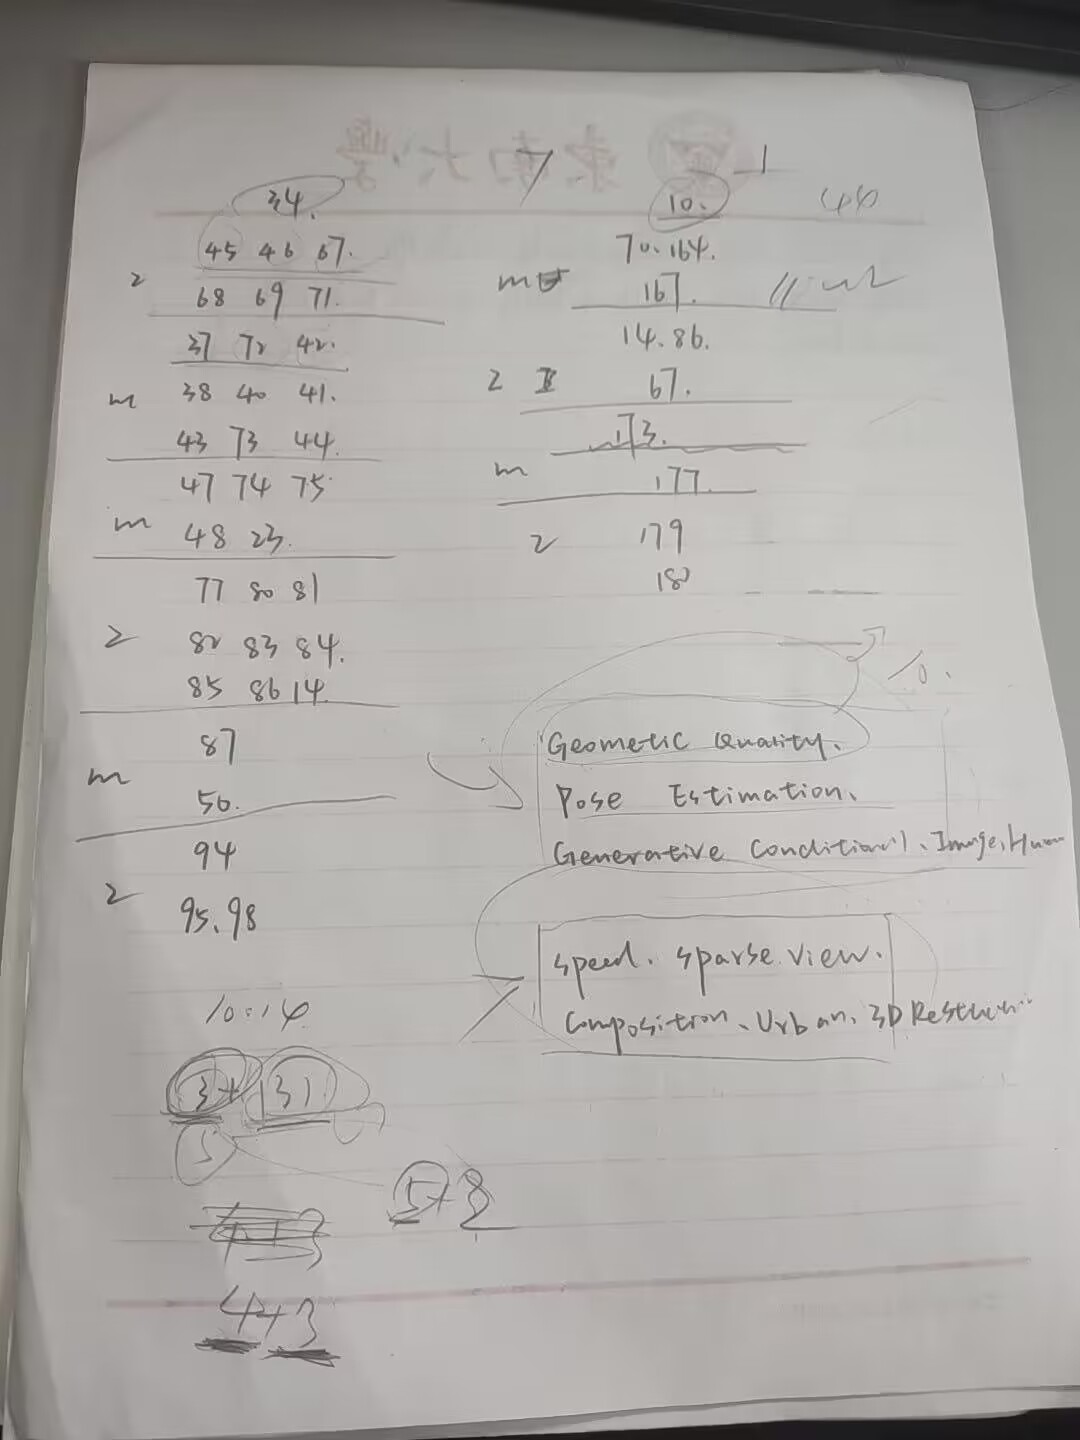 東南大學
34.
45 46 67.
2
68 69 71.
37 72 42.
m 38 40 41.
43 73 44.
47 74 75
m 48 23.
77 80 81
2 82 83 84.
85 86 14.
87
m
50.
94
2
95.98
10:14
3+31
5
4+3
4+3
5+2
1
10.
44
70.164.
m
167.
14.86.
2 67.
173.
m 177.
2 179
180
10.
Geometic Quality、
Pose Estimation、
Generative Condition、Image、Human
speed. sparse view.
Composition、Urban、3D